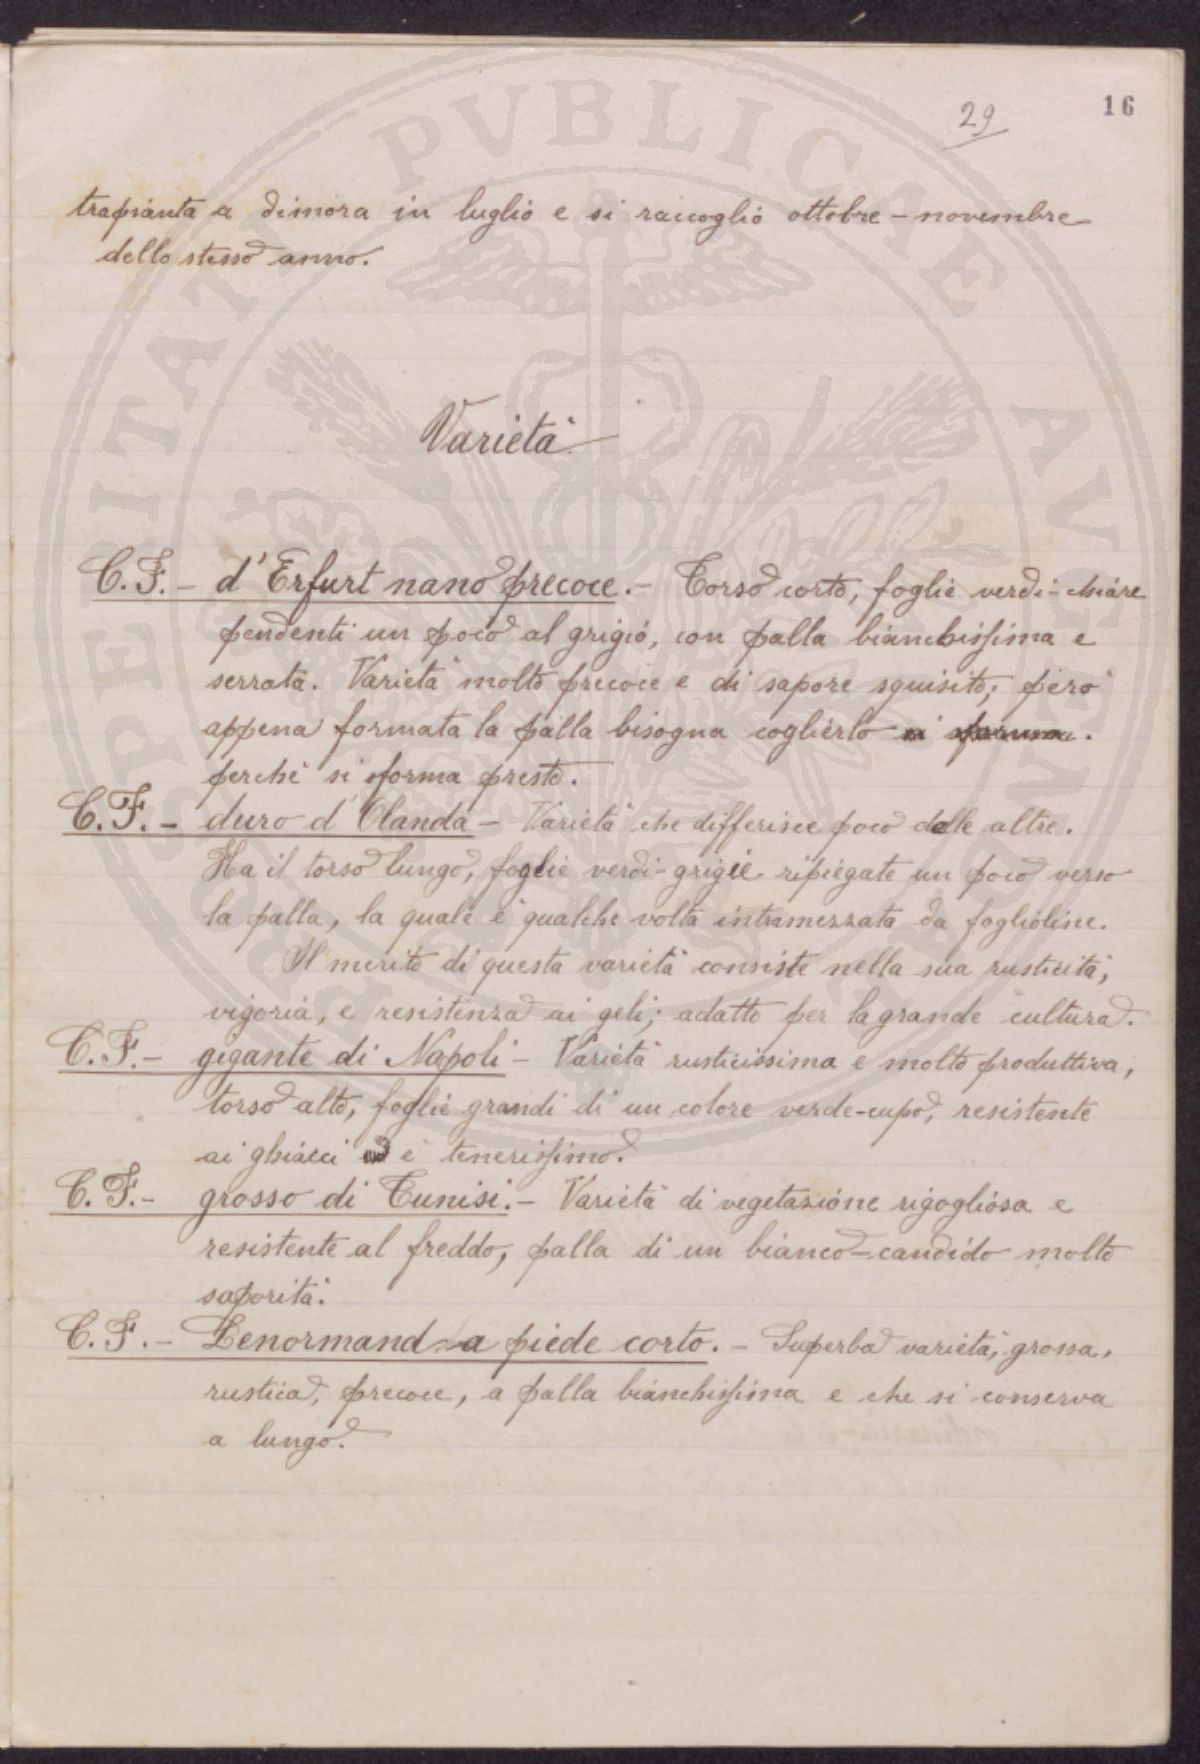 29
16
trapianta a dimora in luglio e si raccoglio ottobre - novembre
dello stesso anno.
Varietà
C. F. - d'Erfurt nano precoce. - Torso corto, foglie verdi-chiare
pendenti un poco al grigio, con palla bianchissima e
serrata. Varietà molto precoce e di sapore squisito; però
appena formata la palla bisogna coglierlo
perchè si sforma presto.
C. F. - duro d'Olanda - Varietà che differisce poco dalle altre.
Ha il torso lungo, foglie verdi-grigie ripiegate un poco verso
la palla, la quale è qualche volta intramezzata da foglioline.
Il merito di questa varietà consiste nella sua rusticità,
vigoria, e resistenza ai geli; adatto per la grande cultura.
C. F. - gegante di Napoli - Varietà rusticissima e molto produttiva,
torso alto, foglie grandi di un colore verde-cupo, resistente
ai ghiacci è tenerissimo.
C. F. - grosso di Tunisi. - Varietà di vegetazione rigogliosa e
resistente al freddo, palla di un bianco-candido molto
saporita.
C. F. - Lenormand a piede corto. - Superba varietà, grossa,
rustica, precoce, a palla bianchissima e che si conserva
a lungo.
PROSPERITATI PVBLICAE AVGENDAE